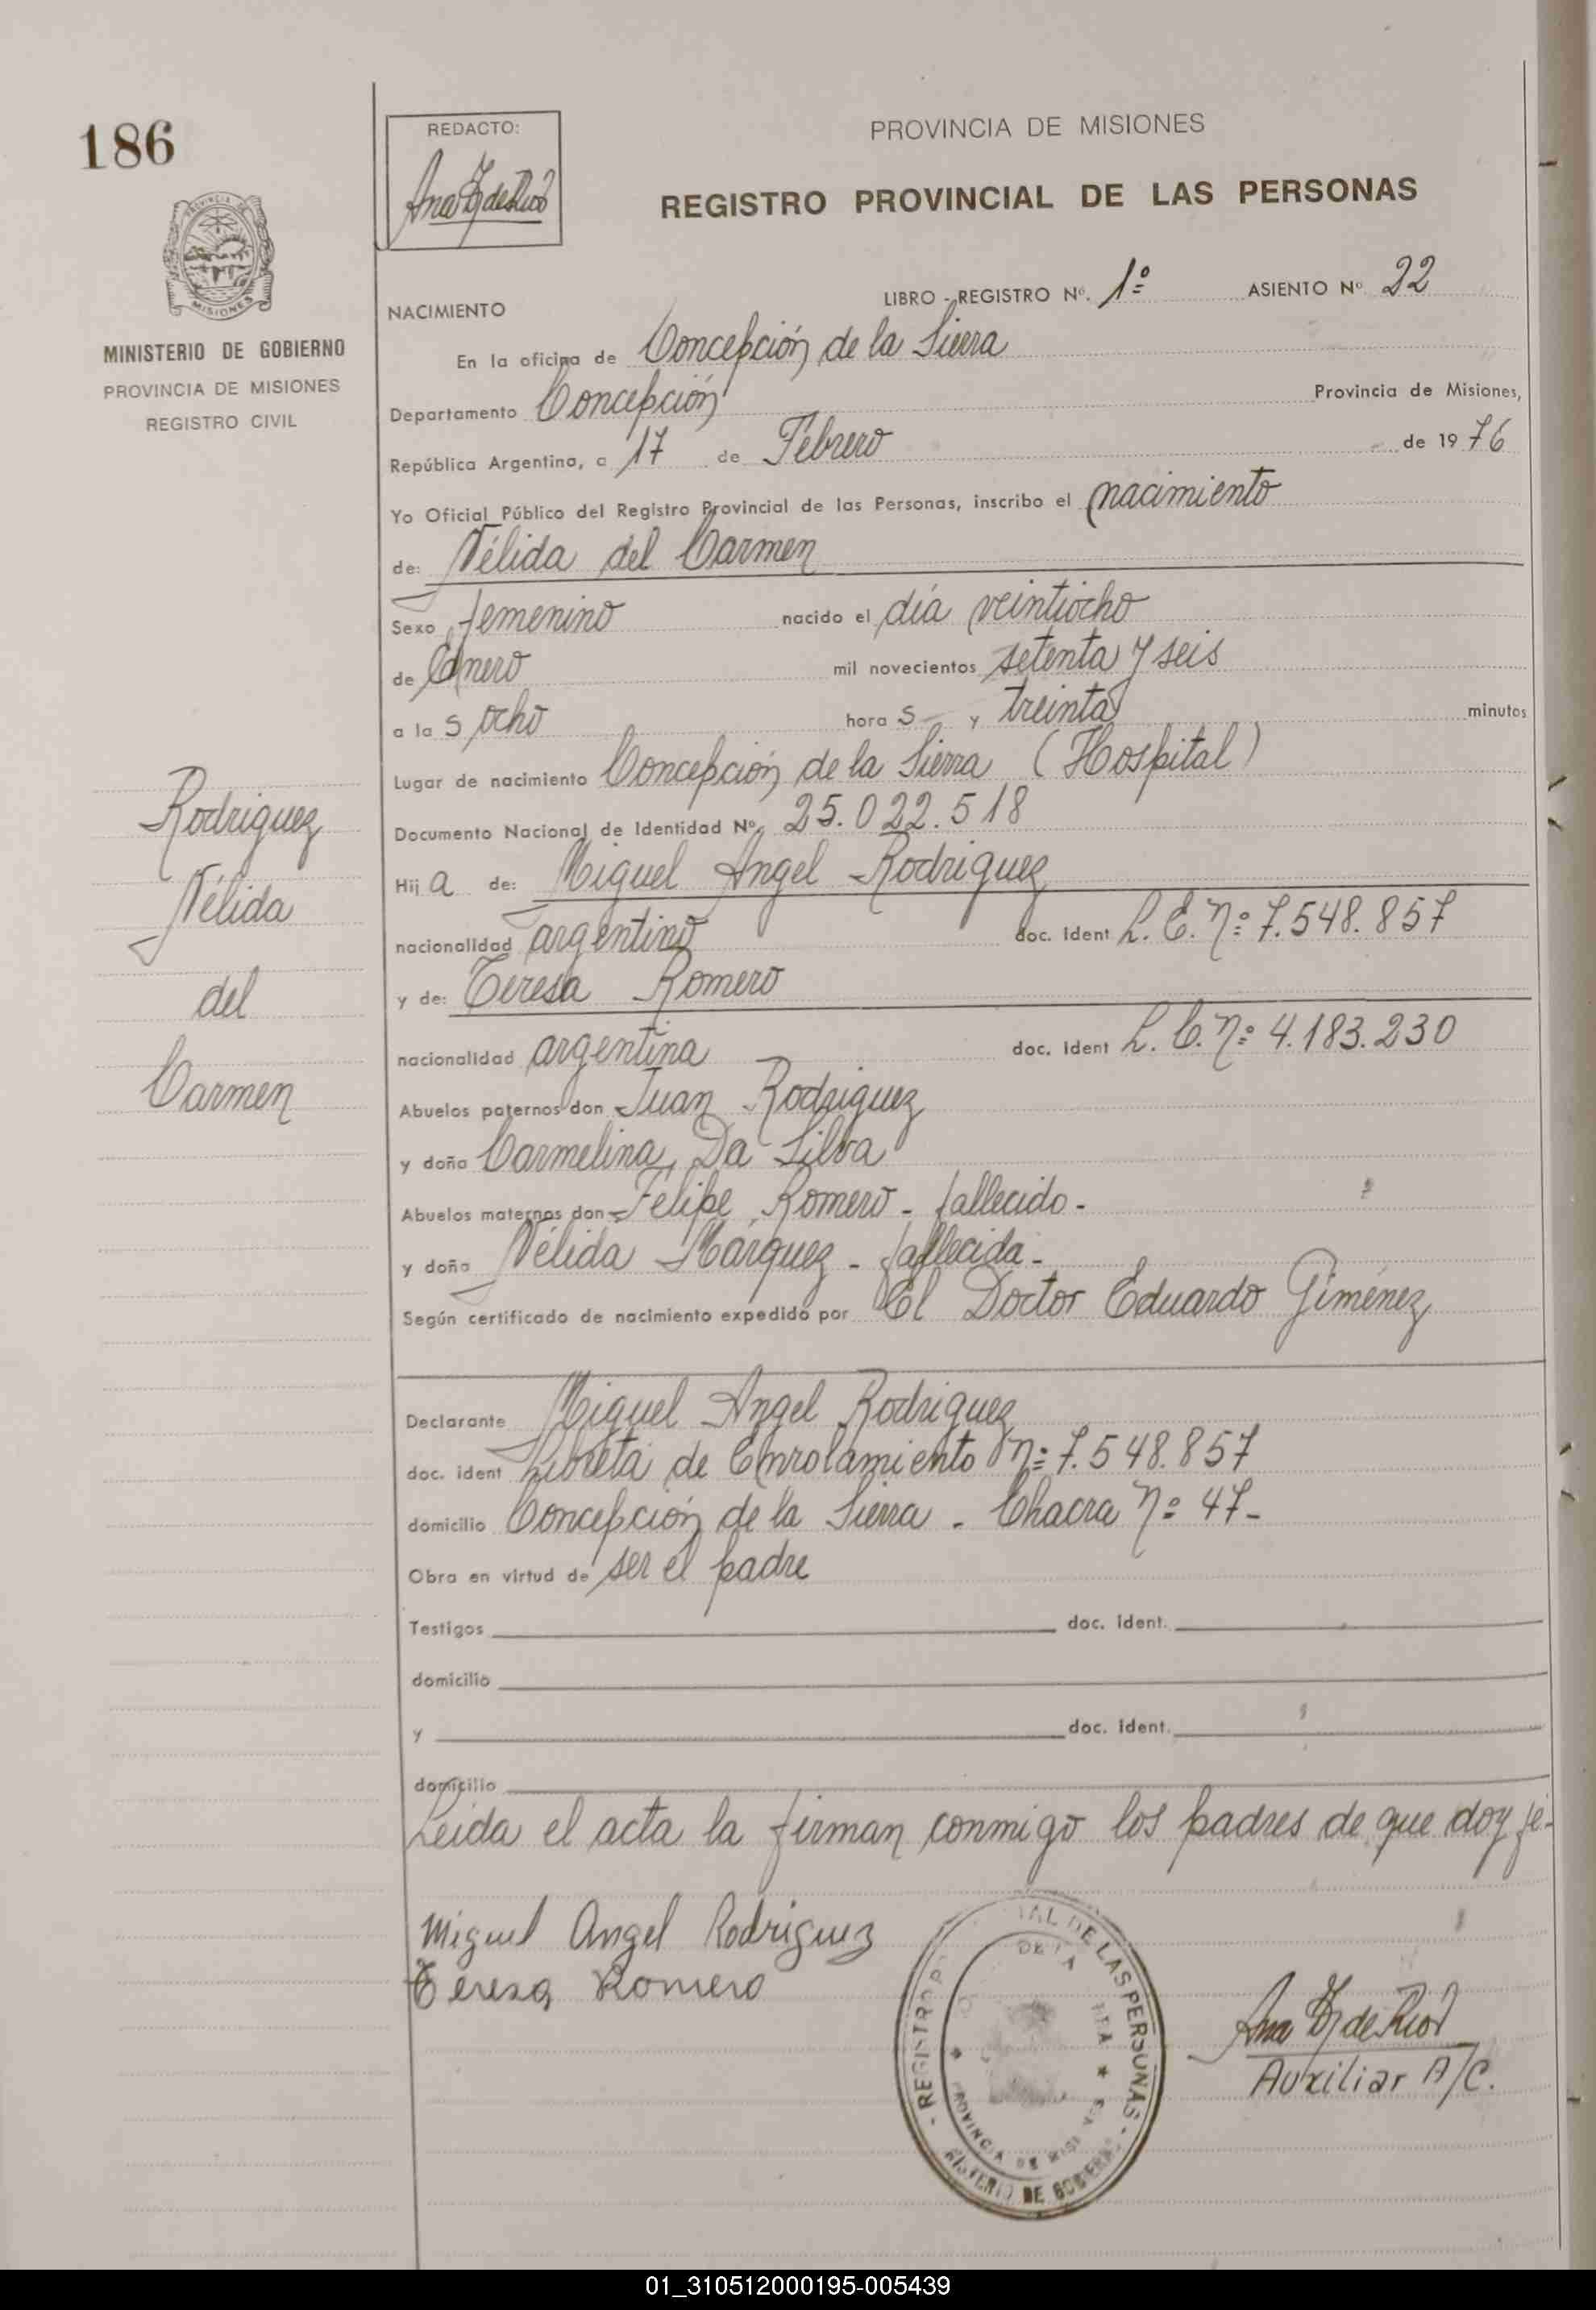 186
REDACTO:
PROVINCIA DE MISIONES
REGISTRO PROVINCIAL DE LAS PERSONAS
MISIONES
MINISTERIO DE GOBIERNO
PROVINCIA DE MISIONES
REGISTRO CIVIL
LIBRO - REGISTRO Nº. 1º ASIENTO Nº 22
NACIMIENTO
En la oficina de Concepción de la Sierra
Departamento Concepción Provincia de Misiones,
República Argentina, a 17 de Febrero de 1976
Yo Oficial Público del Registro Provincial de las Personas, inscribo el nacimiento
de: Nélida del Carmen
Sexo femenino nacido el día veintiocho
de Enero mil novecientos setenta y seis
a las ocho horas y treinta minutos
Lugar de nacimiento Concepción de la Sierra (Hospital)
Documento Nacional de Identidad Nº 25.022.518
Hija de: Miguel Angel Rodriguez
nacionalidad argentino doc. ident L. E. Nº 7.548.857
y de: Teresa Romero
nacionalidad argentina doc. ident L. C. Nº 4.183.230
Abuelos paternos don Juan Rodriguez
y doña Carmelina Da Silva
Abuelos maternos don Felipe Romero - fallecido -
y doña Nélida Márquez - fallecida -
Según certificado de nacimiento expedido por El Doctor Eduardo Giménez
Rodriguez
Nélida
del
Carmen
Declarante Miguel Angel Rodriguez
doc. ident Libreta de Enrolamiento Nº 7.548.857
domicilio Concepción de la Sierra - Chacra Nº 47-
Obra en virtud de ser el padre
Testigos doc. ident.
domicilio
y doc. ident.
domicilio
Leida el acta la firman conmigo los padres de que doy fé-
Miguel Angel Rodriguez
Teresa Romero
DE LAS PERSONAS
PROVINCIA DE
DE
Ana de
Auxiliar A/C.
01_310512000195-005439